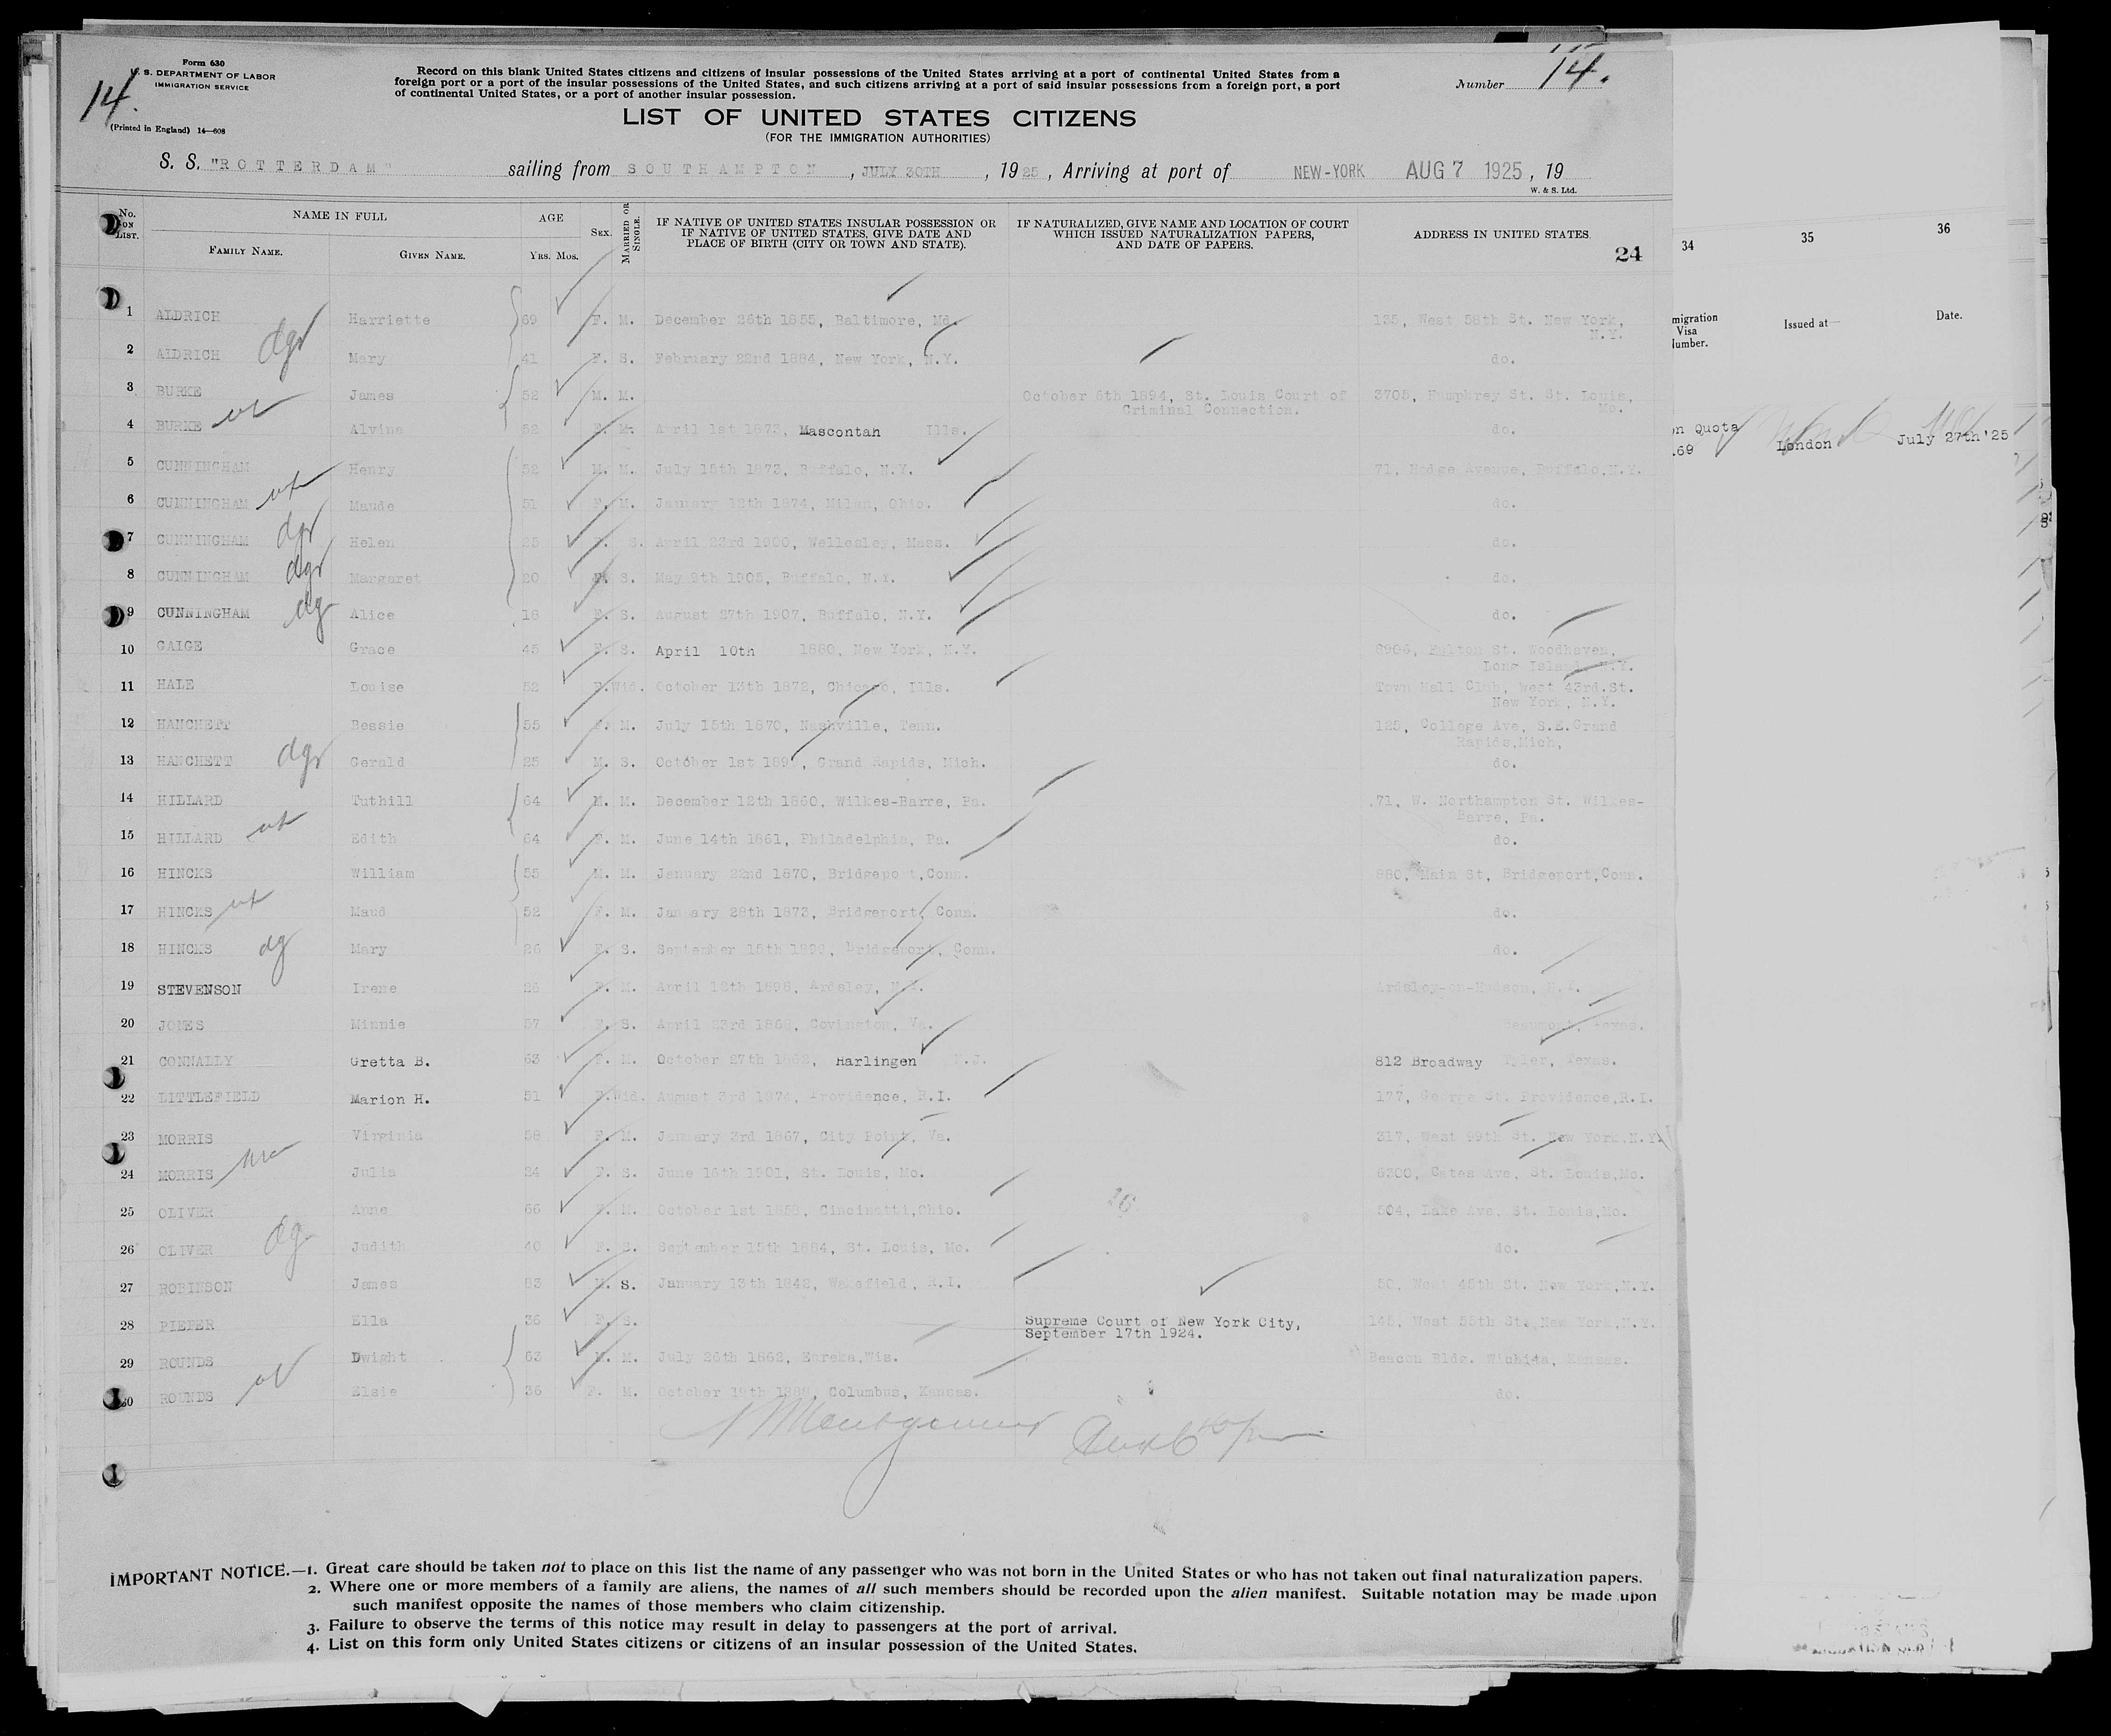 Form 630
U. S. DEPARTMENT OF LABOR
IMMIGRATION SERVICE
14.
(Printed in England) 14—608
Record on this blank United States citizens and citizens of insular possessions of the United States arriving at a port of continental United States from a
foreign port or a port of the insular possessions of the United States, and such citizens arriving at a port of said insular possessions from a foreign port, a port
of continental United States, or a port of another insular possession.
Number 14.
LIST OF UNITED STATES CITIZENS
(FOR THE IMMIGRATION AUTHORITIES)
S. S. "ROTTERDAM" sailing from SOUTHAMPTON, JULY 30TH, 1925, Arriving at port of NEW-YORK AUG 7 1925, 19
W. & S. Ltd.
No. ON LIST. NAME IN FULL AGE SEX. MARRIED OR SINGLE. IF NATIVE OF UNITED STATES INSULAR POSSESSION OR IF NATIVE OF UNITED STATES, GIVE DATE AND PLACE OF BIRTH (CITY OR TOWN AND STATE). IF NATURALIZED, GIVE NAME AND LOCATION OF COURT WHICH ISSUED NATURALIZATION PAPERS, AND DATE OF PAPERS. ADDRESS IN UNITED STATES.
FAMILY NAME. GIVEN NAME. YRS. MOS. 24
34 35 36
migration Visa umber. Issued at— Date.
1 ALDRICH Harriette 69 F. M. December 26th 1855, Baltimore, Md. 135, West 58th St. New York, N.Y.
2 ALDRICH Mary 41 F. S. February 22nd 1884, New York, N.Y. do.
3 BURKE James 52 M. M. October 6th 1894, St. Louis Court of Criminal Connection. 3705, Humphrey St. St. Louis, Mo.
4 BURKE Alvina 52 F. M. April 1st 1873, Mascontah Ills. do.
n Quota
.69 London July 27th '25
5 CUNNINGHAM Henry 52 M. M. July 15th 1873, Buffalo, N.Y. 71, Hodge Avenue, Buffalo, N.Y.
6 CUNNINGHAM Maude 51 F. M. January 12th 1874, Milan, Ohio. do.
7 CUNNINGHAM Helen 25 F. S. April 23rd 1900, Wellesley, Mass. do.
8 CUNNINGHAM Margaret 20 F. S. May 9th 1905, Buffalo, N.Y. do.
9 CUNNINGHAM Alice 18 F. S. August 27th 1907, Buffalo, N.Y. do.
10 GAIGE Grace 45 F. S. April 10th 1880, New York, N.Y. 8906, Fulton St. Woodhaven, Long Island N.Y.
11 HALE Louise 52 F. Wid. October 13th 1872, Chicago, Ills. Town Hall Club, West 43rd.St. New York, N.Y.
12 HANCHETT Bessie 55 F. M. July 15th 1870, Nashville, Tenn. 125, College Ave, S.E.Grand Rapids,Mich,
13 HANCHETT Gerald 25 M. S. October 1st 189 , Grand Rapids, Mich. do.
14 HILLARD Tuthill 64 M. M. December 12th 1860, Wilkes-Barre, Pa. 71, W. Northampton St. Wilkes-Barre, Pa.
15 HILLARD Edith 64 F. M. June 14th 1861, Philadelphia, Pa. do.
16 HINCKS William 55 M. M. January 22nd 1870, Bridgeport,Conn. 880, Main St, Bridgeport,Conn.
17 HINCKS Maud 52 F. M. January 28th 1873, Bridgeport, Conn. do.
18 HINCKS Mary 26 F. S. September 15th 1898, Bridgeport, Conn. do.
19 STEVENSON Irene 26 F. M. April 12th 1898, Ardsley, N.Y. Ardsley-on-Hudson, N.Y.
20 JONES Minnie 57 F. S. April 23rd 1868, Covington, Va. Beaumont, Texas.
21 CONNALLY Gretta B. 63 F. M. October 27th 1862, Harlingen N.J. 812 Broadway Tyler, Texas.
22 LITTLEFIELD Marion H. 51 F. Wid. August 3rd 1874, Providence, R.I. 177, George St. Providence,R.I.
23 MORRIS Virginia 58 F. M. January 3rd 1867, City Point, Va. 317, West 99th St. New York,N.Y.
24 MORRIS Julia 24 F. S. June 16th 1901, St. Louis, Mo. 6300, Cates Ave, St. Louis,Mo.
25 OLIVER Anne 66 F. M. October 1st 1858, Cincinatti,Ohio. 504, Lake Ave, St. Louis,Mo.
26 OLIVER Judith 40 F. S. September 15th 1884, St. Louis, Mo. do.
27 ROBINSON James 83 M. S. January 13th 1842, Wakefield, R.I. 50, West 45th St. New York,N.Y.
28 PIEPER Ella 36 F. S. Supreme Court of New York City, September 17th 1924. 145, West 55th St. New York,N.Y.
29 ROUNDS Dwight 63 M. M. July 26th 1862, Eureka,Wis. Beacon Bldg. Wichita, Kansas.
30 ROUNDS Elsie 36 F. M. October 19th 1888, Columbus, Kansas. do.
IMPORTANT NOTICE.—1. Great care should be taken not to place on this list the name of any passenger who was not born in the United States or who has not taken out final naturalization papers.
2. Where one or more members of a family are aliens, the names of all such members should be recorded upon the alien manifest. Suitable notation may be made upon
such manifest opposite the names of those members who claim citizenship.
3. Failure to observe the terms of this notice may result in delay to passengers at the port of arrival.
4. List on this form only United States citizens or citizens of an insular possession of the United States.